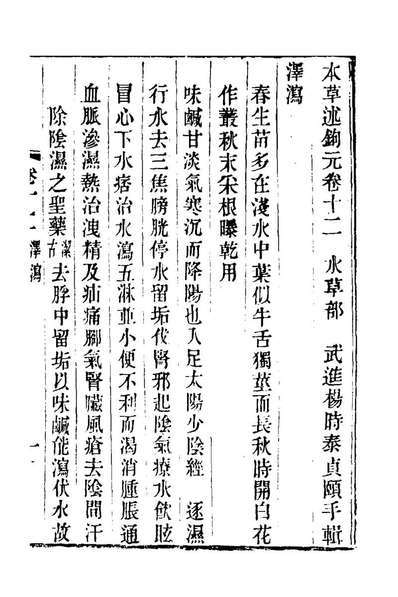 本草述鉤元卷十二　水草部　武進楊時泰貞頤手輯
澤瀉
春生苗多在淺水中葉似牛舌獨莖而長秋時開白花
作叢秋末采根曝乾用
味鹹甘淡氣寒沉而降陽也入足太陽少陰經　逐濕
行水去三焦膀胱停水留垢伐腎邪起陰氣療水飲眩
冒心下水痞治水瀉五淋並小便不利而渴消腫脹通
血脈滲濕熱治洩精及疝痛腳氣腎臟風瘡去陰間汗
除陰濕之聖藥潔古去脬中留垢以味鹹能瀉伏水故
卷十二　澤瀉　一